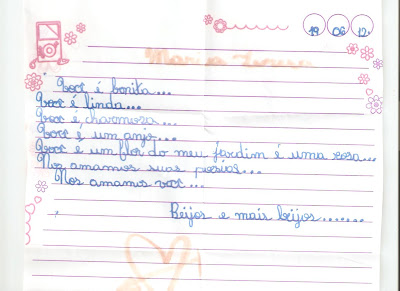 19 06 12
Maria
Você é bonita...
Você é linda...
Você é charmosa...
Você é um anjo...
Você é um flor do meu jardim é uma rosa...
Nos amamos suas poesias...
Nos amamos você...
Beijos e mais beijos.......